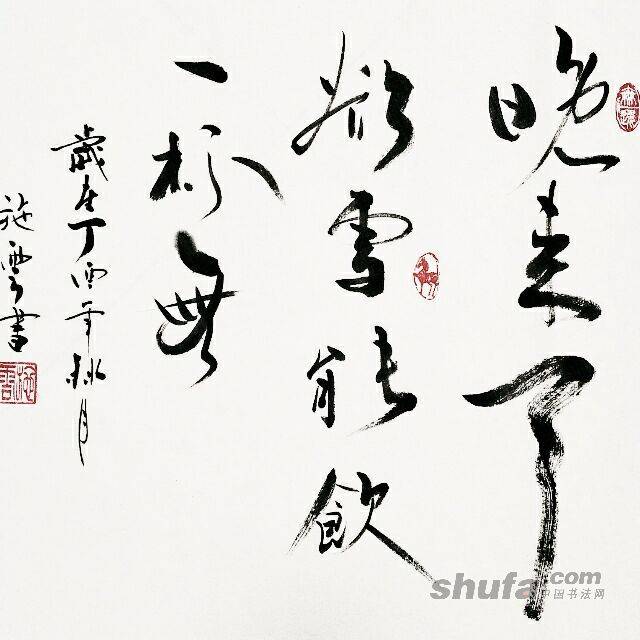 晚来天
欲雪能飲
一杯無
歲在丁酉年桃月
施雲書
shufa.com
中国书法网